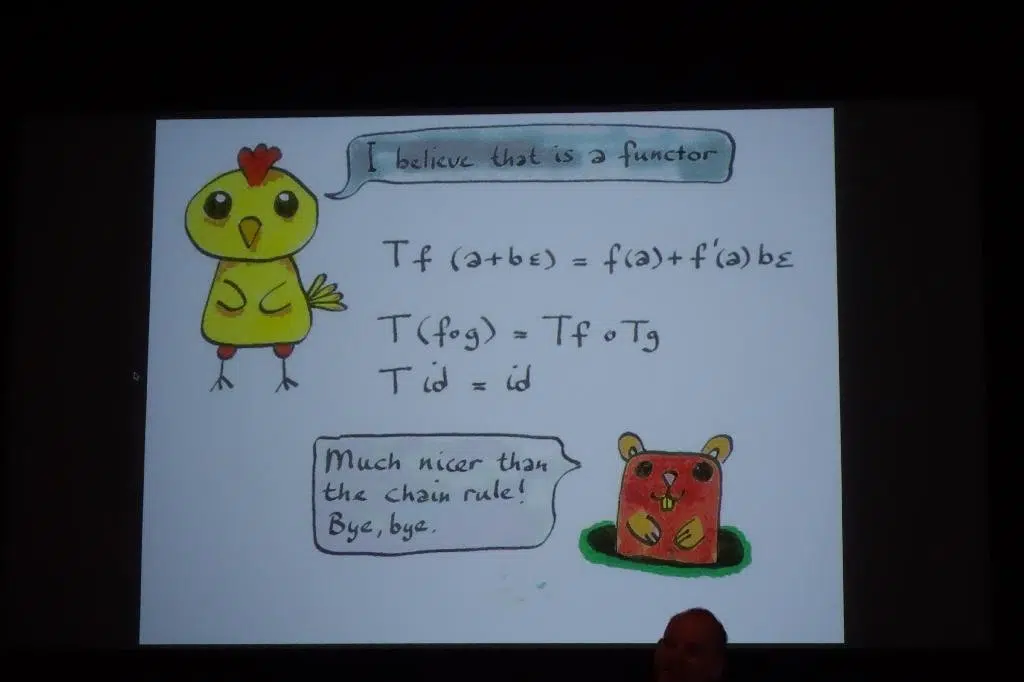 I believe that is a functor
Tf (a+bε) = f(a)+f'(a)bε
T(f∘g) = Tf ∘ Tg
T id = id
Much nicer than
the chain rule!
Bye, bye.